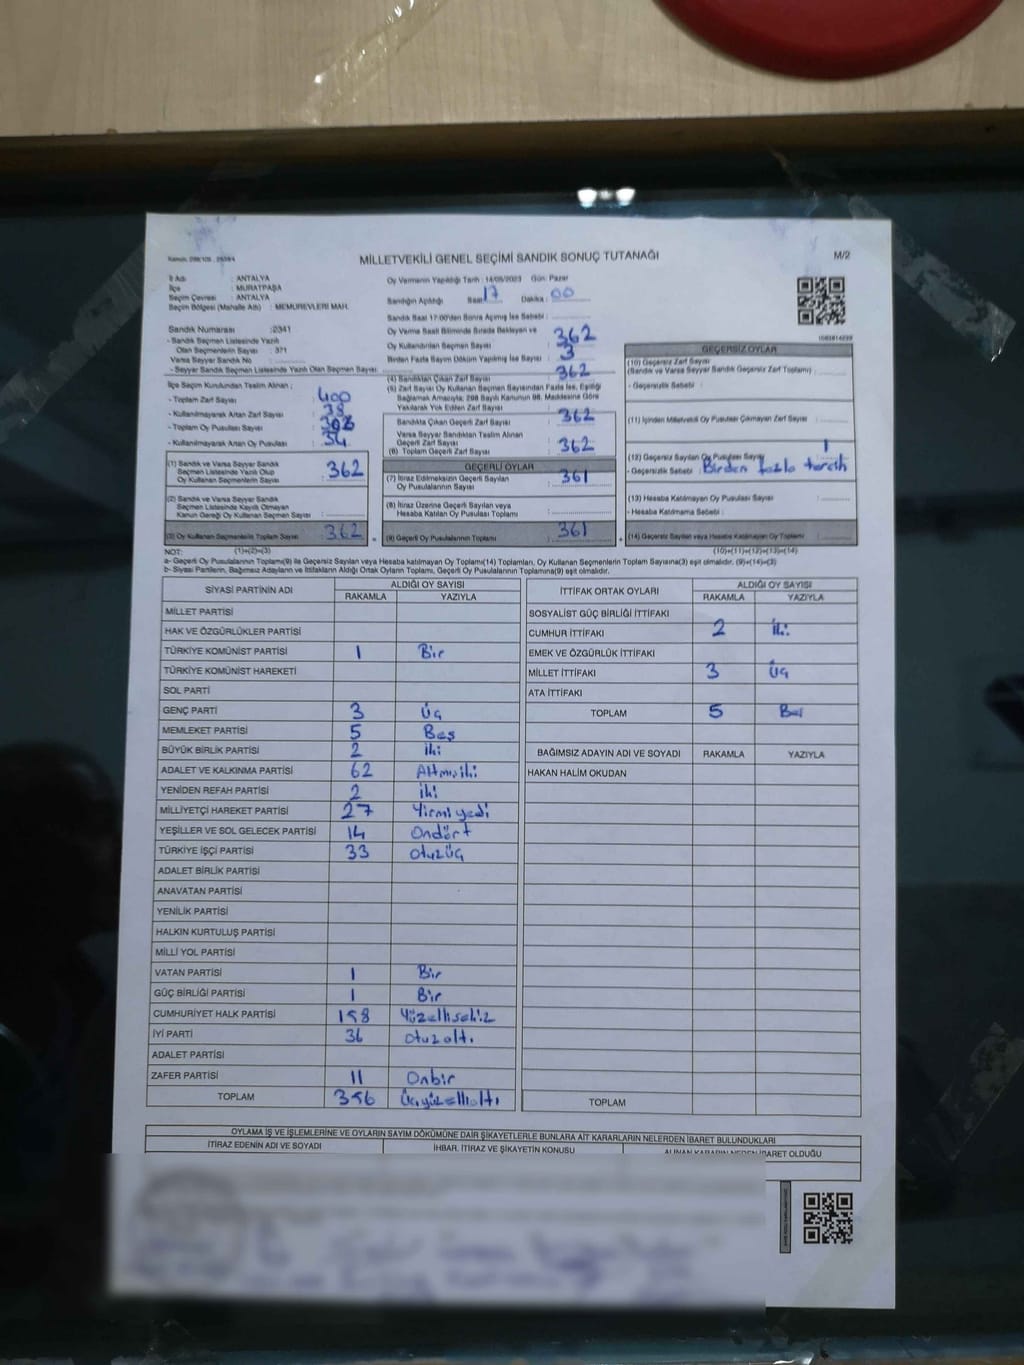 MİLLETVEKİLİ GENEL SEÇİMİ SANDIK SONUÇ TUTANAĞI
M/2
İl Adı : ANTALYA
İlçe : MURATPAŞA
Seçim Çevresi : ANTALYA
Seçim Bölgesi (Mahalle Adı) : MEMUREVLERİ MAH.
Sandık Numarası :2341
- Sandık Seçmen Listesinde Yazılı
Olan Seçmenlerin Sayısı : 371
Varsa Seyyar Sandık No
- Seyyar Sandık Seçmen Listesinde Yazılı Olan Seçmen Sayısı
Oy Vermenin Yapıldığı Tarih : 14/05/2023 Gün: Pazar
Sandığın Açıldığı Saat 17 Dakika : 00
Sandık Saat 17:00'den Sonra Açılmış İse Sebebi :
Oy Verme Saati Bitiminde Sırada Bekleyen ve
Oy Kullandırılan Seçmen Sayısı 362
Birden Fazla Sayım Döküm Yapılmış İse Sayısı 3
İlçe Seçim Kurulundan Teslim Alınan ;
- Toplam Zarf Sayısı : 400
- Kullanılmayarak Artan Zarf Sayısı : 38
- Toplam Oy Pusulası Sayısı
- Kullanılmayarak Artan Oy Pusulası : 34
(1) Sandık ve Varsa Seyyar Sandık
Seçmen Listesinde Yazılı Olup
Oy Kullanan Seçmenlerin Sayısı : 362
(2) Sandık ve Varsa Seyyar Sandık
Seçmen Listesinde Kayıtlı Olmayan
Kanun Gereği Oy Kullanan Seçmen Sayısı
(3) Oy Kullanan Seçmenlerin Toplam Sayısı : 362
(4) Sandıktan Çıkan Zarf Sayısı : 362
(5) Zarf Sayısı Oy Kullanan Seçmen Sayısından Fazla İse, Eşitliği
Sağlamak Amacıyla; 298 Sayılı Kanunun 98. Maddesine Göre
Yakılarak Yok Edilen Zarf Sayısı
Sandıkta Çıkan Geçerli Zarf Sayısı : 362
Varsa Seyyar Sandıktan Teslim Alınan
Geçerli Zarf Sayısı
(6) Toplam Geçerli Zarf Sayısı : 362
GEÇERLİ OYLAR
(7) İtiraz Edilmeksizin Geçerli Sayılan
Oy Pusulalarının Sayısı : 361
(8) İtiraz Üzerine Geçerli Sayılan veya
Hesaba Katılan Oy Pusulası Toplamı
(9) Geçerli Oy Pusulalarının Toplamı : 361
GEÇERSİZ OYLAR
(10) Geçersiz Zarf Sayısı
(Sandık ve Varsa Seyyar Sandık Geçersiz Zarf Toplamı)
- Geçersizlik Sebebi :
(11) İçinden Milletvekili Oy Pusulası Çıkmayan Zarf Sayısı
(12) Geçersiz Sayılan Oy Pusulası Sayısı 1
- Geçersizlik Sebebi : Birden fazla tercih
(13) Hesaba Katılmayan Oy Pusulası Sayısı
- Hesaba Katılmama Sebebi :
(14) Geçersiz Sayılan veya Hesaba Katılmayan Oy Toplamı
NOT: (1)+(2)=(3) (10)+(11)+(12)+(13)=(14)
a- Geçerli Oy Pusulalarının Toplamı(9) ile Geçersiz Sayılan veya Hesaba katılmayan Oy Toplamı(14) Toplamları, Oy Kullanan Seçmenlerin Toplam Sayısına(3) eşit olmalıdır. (9)+(14)=(3)
b- Siyasi Partilerin, Bağımsız Adayların ve İttifakların Aldığı Ortak Oyların Toplamı, Geçerli Oy Pusulalarının Toplamına(9) eşit olmalıdır.
SİYASİ PARTİNİN ADI ALDIĞI OY SAYISI
RAKAMLA YAZIYLA
MİLLET PARTİSİ
HAK VE ÖZGÜRLÜKLER PARTİSİ
TÜRKİYE KOMÜNİST PARTİSİ 1 Bir
TÜRKİYE KOMÜNİST HAREKETİ
SOL PARTİ
GENÇ PARTİ 3 Üç
MEMLEKET PARTİSİ 5 Beş
BÜYÜK BİRLİK PARTİSİ 2 İki
ADALET VE KALKINMA PARTİSİ 62 Altmışiki
YENİDEN REFAH PARTİSİ 2 İki
MİLLİYETÇİ HAREKET PARTİSİ 27 Yirmiyedi
YEŞİLLER VE SOL GELECEK PARTİSİ 14 Ondört
TÜRKİYE İŞÇİ PARTİSİ 33 Otuzüç
ADALET BİRLİK PARTİSİ
ANAVATAN PARTİSİ
YENİLİK PARTİSİ
HALKIN KURTULUŞ PARTİSİ
MİLLİ YOL PARTİSİ
VATAN PARTİSİ 1 Bir
GÜÇ BİRLİĞİ PARTİSİ 1 Bir
CUMHURİYET HALK PARTİSİ 158 Yüzellisekiz
İYİ PARTİ 36 Otuzaltı
ADALET PARTİSİ
ZAFER PARTİSİ 11 Onbir
TOPLAM 356 Üçyüzellialtı
İTTİFAK ORTAK OYLARI ALDIĞI OY SAYISI
RAKAMLA YAZIYLA
SOSYALİST GÜÇ BİRLİĞİ İTTİFAKI
CUMHUR İTTİFAKI 2 İki
EMEK VE ÖZGÜRLÜK İTTİFAKI
MİLLET İTTİFAKI 3 Üç
ATA İTTİFAKI
TOPLAM 5 Beş
BAĞIMSIZ ADAYIN ADI VE SOYADI RAKAMLA YAZIYLA
HAKAN HALİM OKUDAN
TOPLAM
OYLAMA İŞ VE İŞLEMLERİNE VE OYLARIN SAYIM DÖKÜMÜNE DAİR ŞİKAYETLERLE BUNLARA AİT KARARLARIN NELERDEN İBARET BULUNDUKLARI
İTİRAZ EDENİN ADI VE SOYADI İHBAR, İTİRAZ VE ŞİKAYETİN KONUSU ALINAN KARARIN NEDEN İBARET OLDUĞU